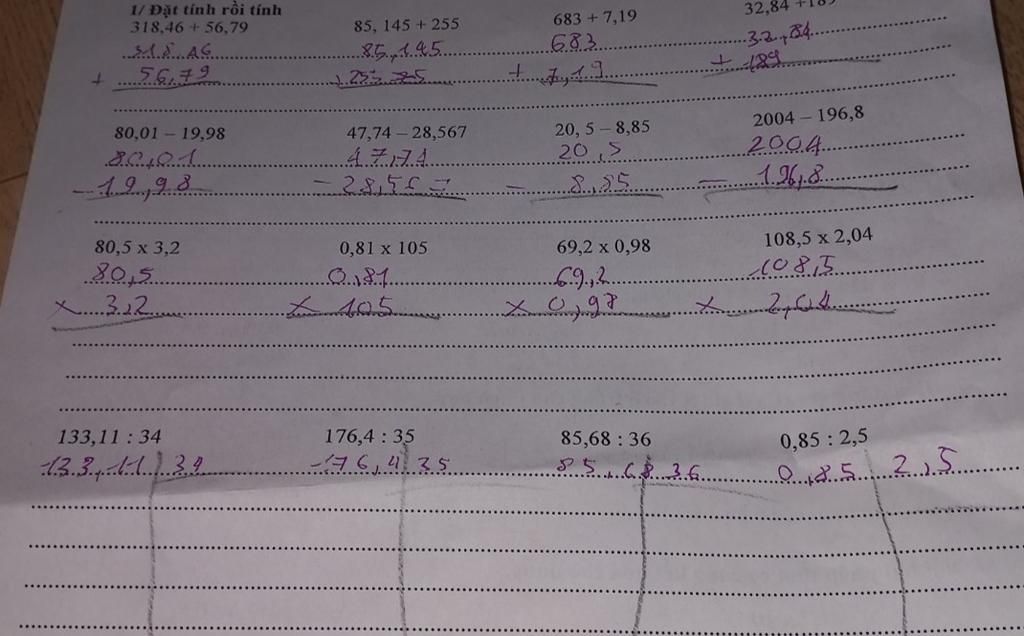 1/ Đặt tính rồi tính
318,46 + 56,79 85, 145 + 255 683 + 7,19 32,84 +189
318,46 85,145 683 32,84
+ 56,79 + 255 + 7,19 + 189
80,01 – 19,98 47,74 – 28,567 20, 5 – 8,85 2004 – 196,8
80,01 47,74 20,5 2004
- 19,98 - 28,567 - 8,85 - 196,8
80,5 x 3,2 0,81 x 105 69,2 x 0,98 108,5 x 2,04
80,5 0,81 69,2 108,5
x 3,2 x 105 x 0,98 x 2,04
133,11 : 34 176,4 : 35 85,68 : 36 0,85 : 2,5
133,11 34 176,4 35 85,68 36 0,85 2,5